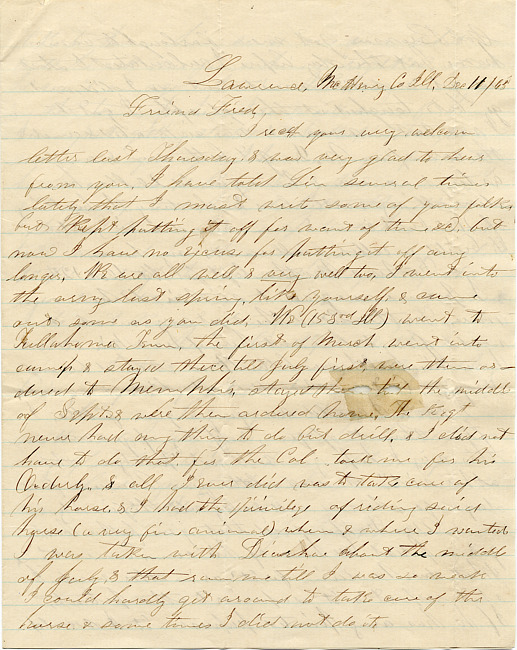 Lawrence, McHenry Co Ill, Dec 11/65
Friend Fred,
I recd your very welcom
letter last Thursday & was very glad to hear
from you, I have told Lin several times
lately that I must writ some of your folks
but kept putting it off for want of time &c. but
now I have no excuse for putting it off any
longer. We are all well & very well too, I went into
the army last spring, like yourself & came
out same as you did. We (153rd Ill) went to
Tullahoma Tenn, the first of March went into
camp & stayed there till July first, were then or-
dered to Memphis, stayed there till the middle
of Sept & were then ordered home, the Regt
never had any thing to do but drill, & I did not
have to do that for the Col. took me for his
Orderly & all I ever did was to take care of
his horse, & I had the privilege of riding said
horse (a very fine animal) when & where I wanted
was taken with Diarrhea about the middle
of July & that run me till I was so weak
I could hardly get around to take care of the
horse & some times I did not do it